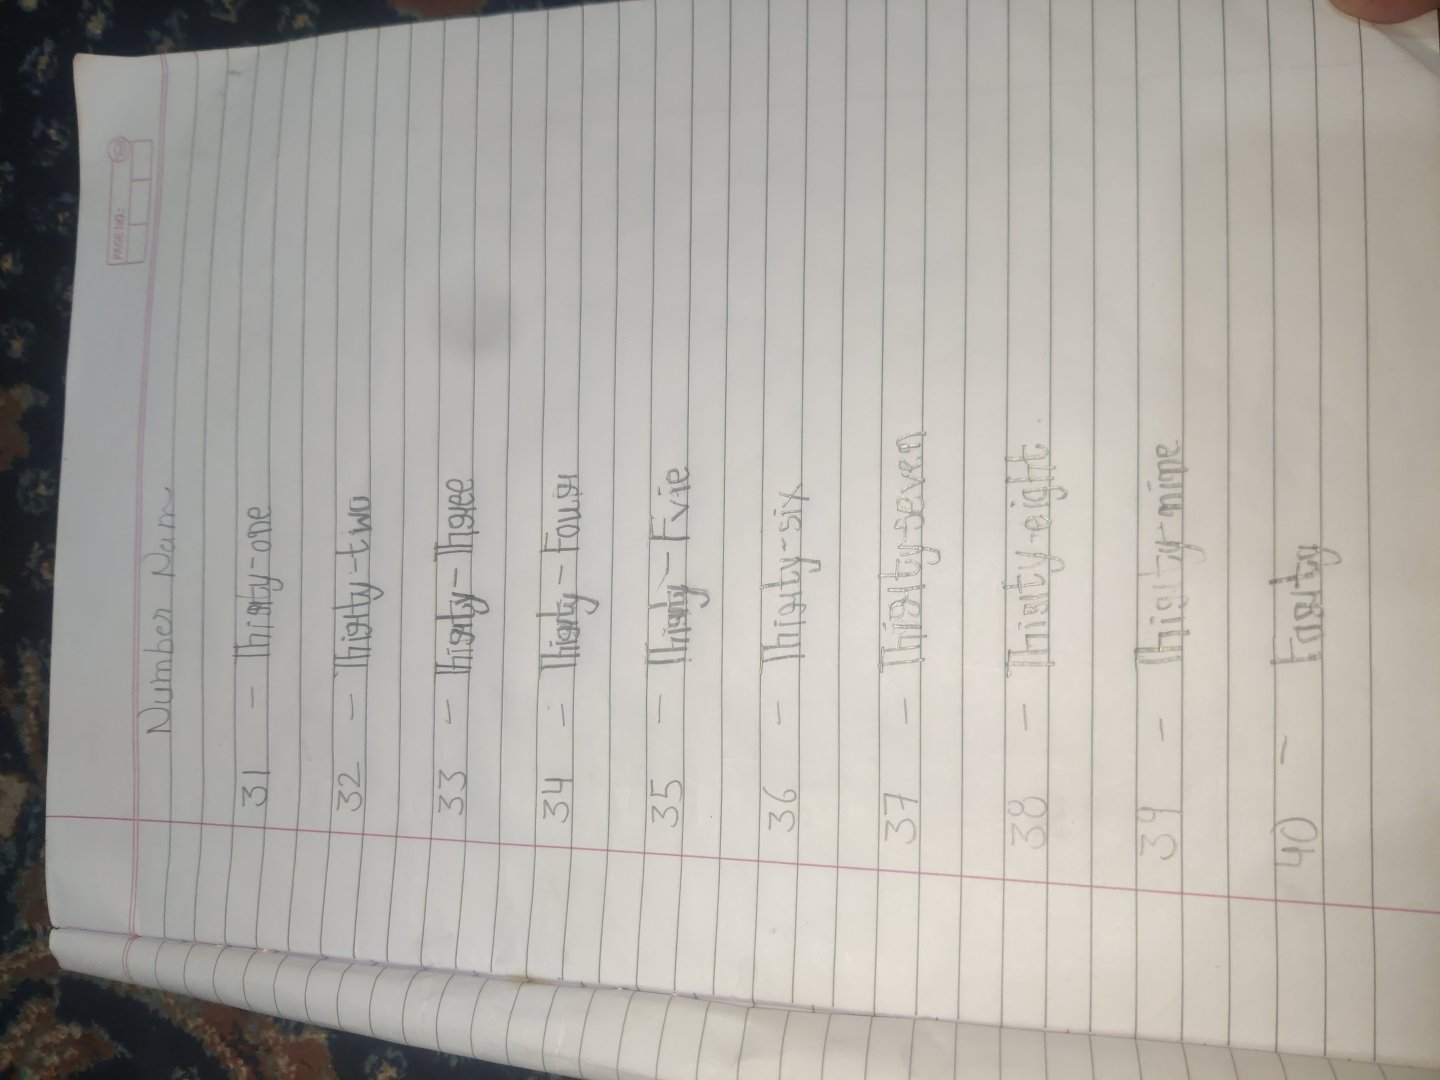 PAGE NO.:
Number Name
31 - Thirty-one
32 - Thirty-two
33 - Thirty-Three
34 - Thirty-Four
35 - Thirty-Fvie
36 - Thirty-six
37 - Thirty-seven
38 - Thirty-eight.
39 - Thirty-nine
40 - Forty